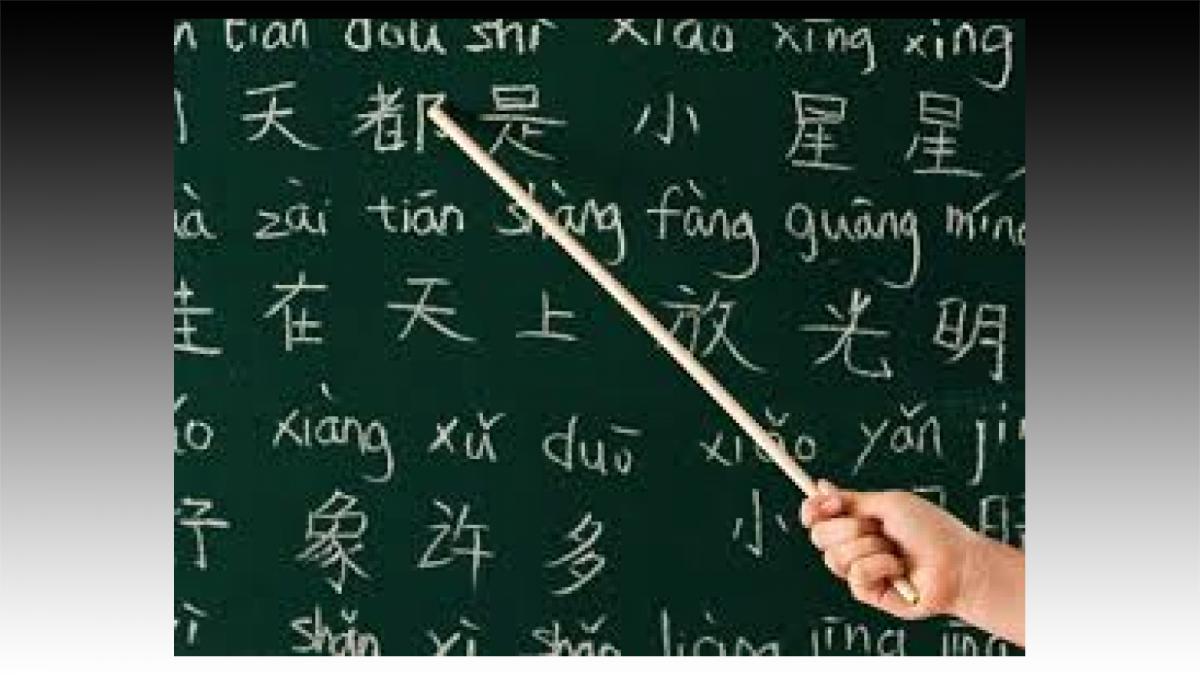 tiān dōu shì xiǎo xīng xing
天 都 是 小 星 星
zài tiān shàng fàng guāng míng
挂 在 天 上 放 光 明
xiàng xǔ duō xiǎo yǎn
象 许 多 小
shǎn yì shǎn liàng jīng jīng